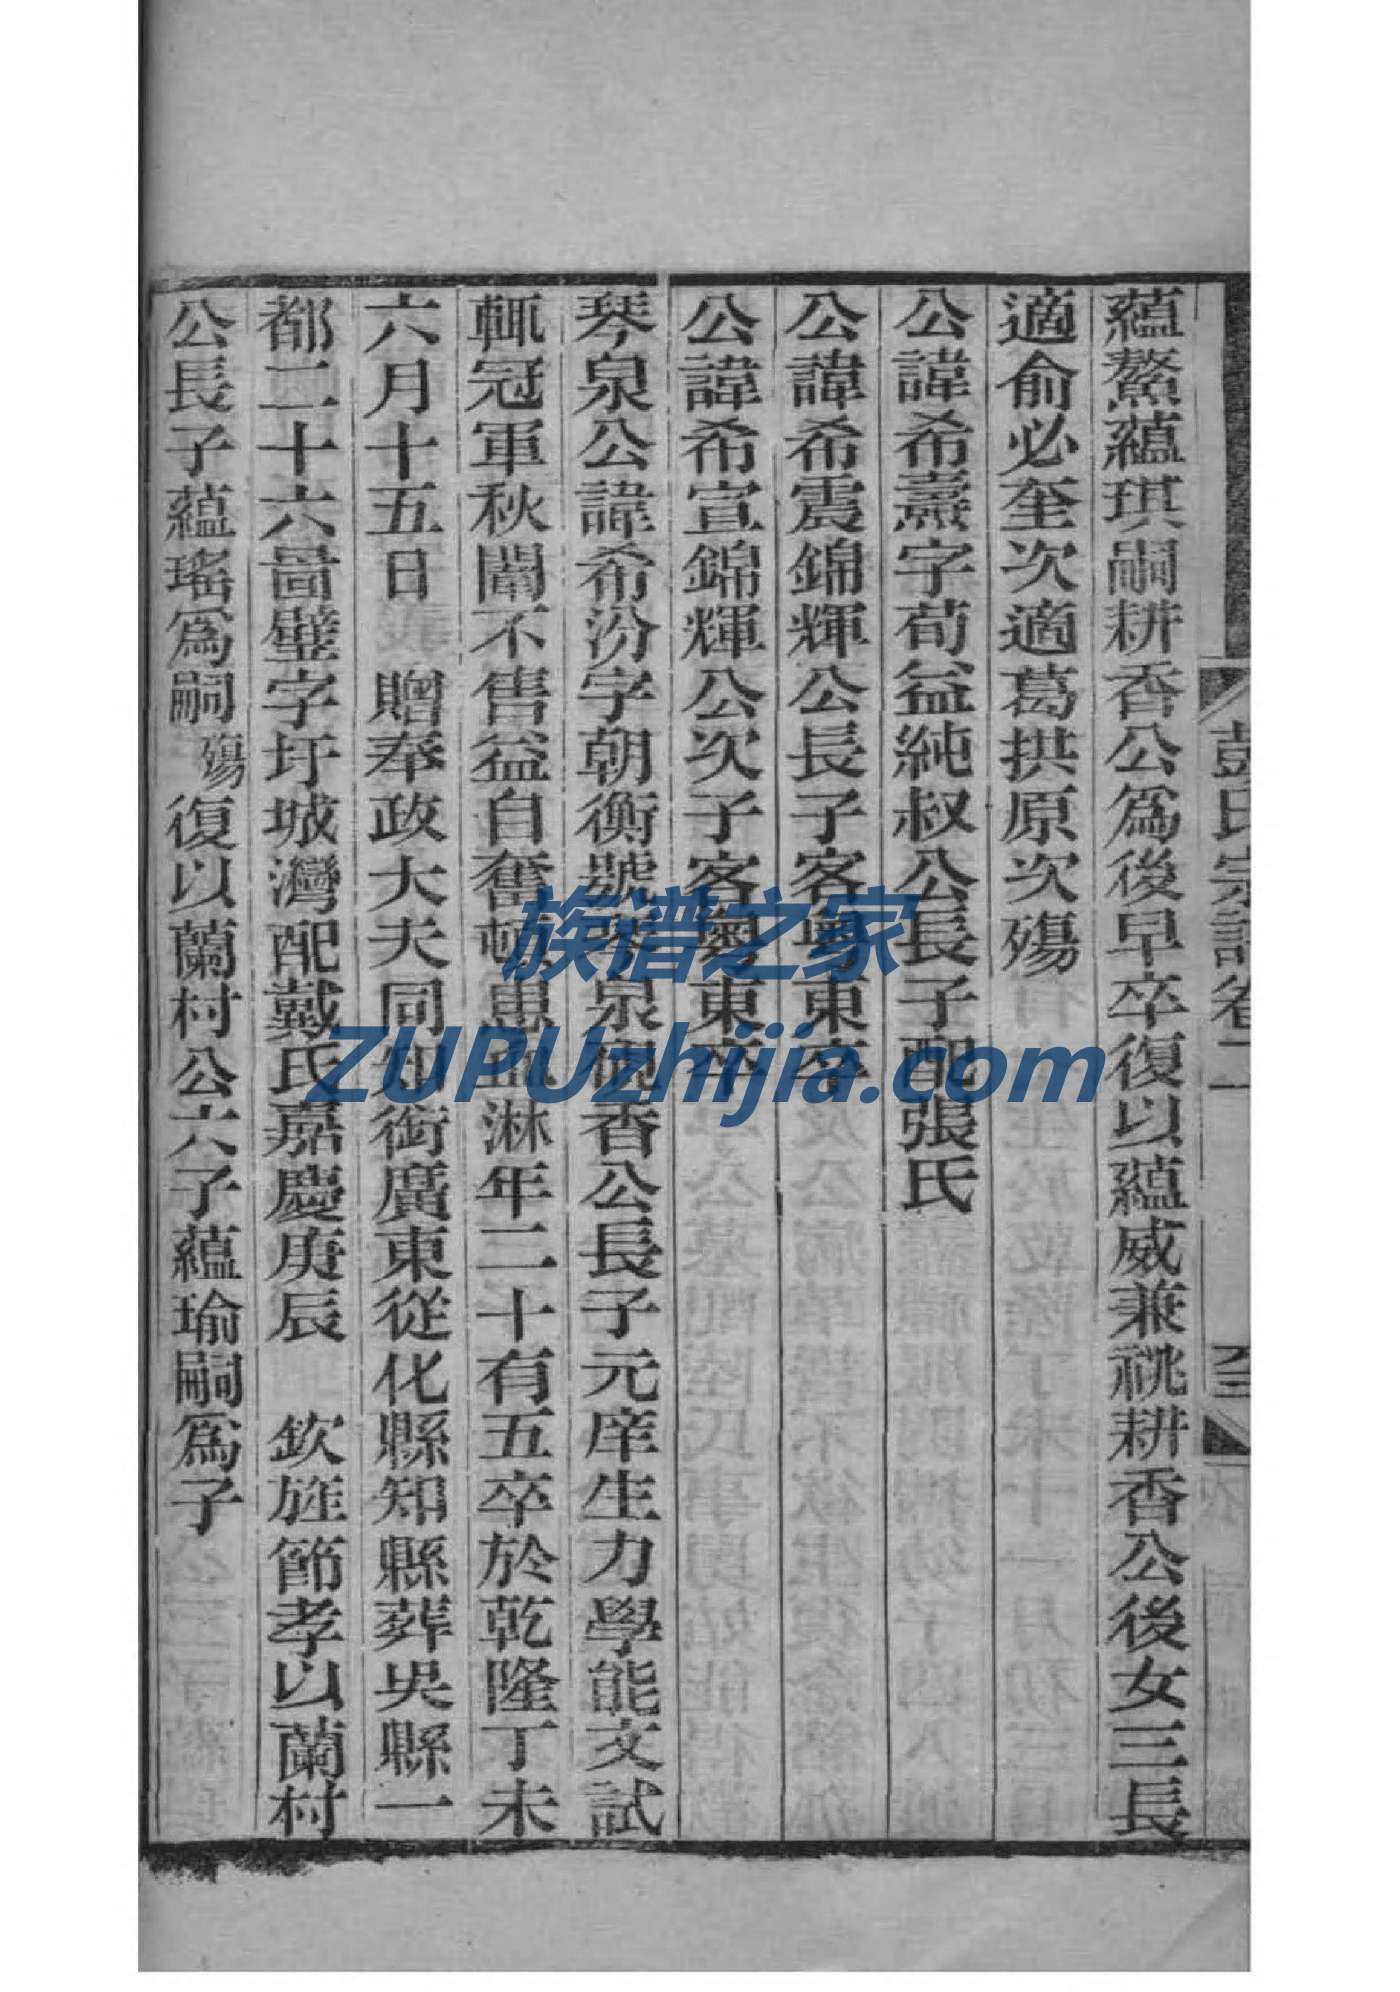 彭氏宗譜卷二
蘊鰲蘊琪嗣耕香公爲後早卒復以蘊威兼祧耕香公後女三長
適俞必奎次適葛拱原次殤
公諱希燾字荀益純叔公長子配張氏
公諱希震錦輝公長子客粤東卒
公諱希宣錦輝公次子客粤東卒
琴泉公諱希汾字朝衡號琴泉樹香公長子元庠生力學能文試
輒冠軍秋闈不售益自奮頓患血淋年二十有五卒於乾隆丁未
六月十五日 贈奉政大夫同知銜廣東從化縣知縣葬吳縣一
都二十六啚璧字圩城灣配戴氏嘉慶庚辰 欽旌節孝以蘭村
公長子蘊瑤爲嗣殤復以蘭村公六子蘊瑜嗣爲子
族谱之家
ZUPUzhijia.com